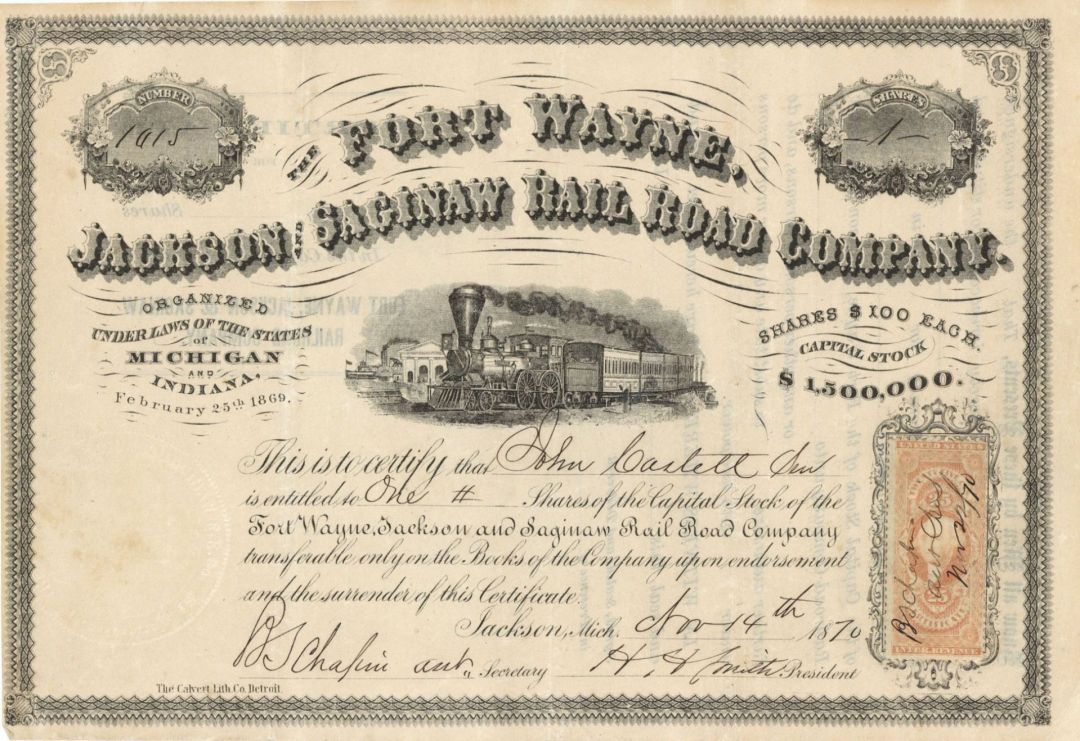 NUMBER
1915
SHARES
-1-
THE FORT WAYNE,
JACKSON AND SAGINAW RAIL ROAD COMPANY.
ORGANIZED
UNDER LAWS OF THE STATES
of
MICHIGAN
AND
INDIANA,
February 25th 1869.
SHARES $100 EACH.
CAPITAL STOCK
$1,500,000.
This is to certify that John
is entitled to One # Shares of the Capital Stock of the
Fort Wayne, Jackson and Saginaw Rail Road Company
transferable only on the Books of the Company upon endorsement
and the surrender of this Certificate.
Jackson, Mich. Nov 14th 1870
B S Chapin Secretary H H Smith President
The Calvert Lith. Co. Detroit.
UNITED STATES
INTER. REVENUE